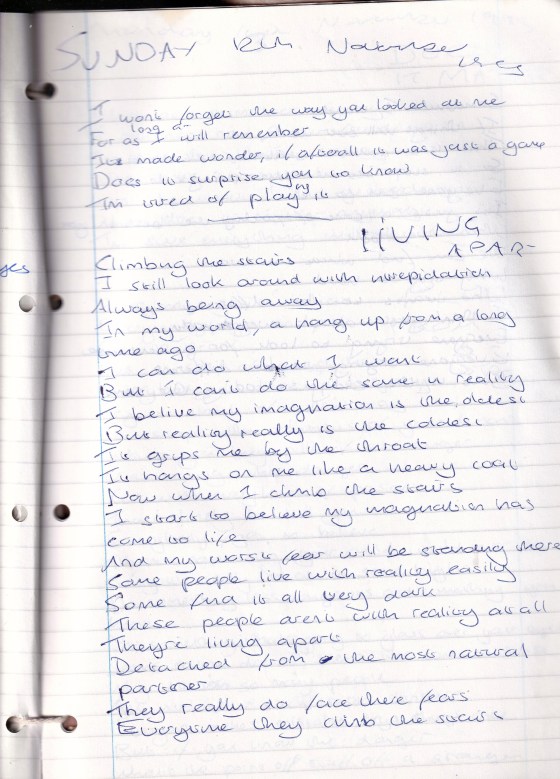 SUNDAY 12th November
I wont forget the way you looked at me
For as long as I will remember
Its made wonder, if afterall it was just a game
Does it surprise you to know
Im tired of playing it
LIVING
APART
Climbing the stairs
I still look around withntrepidation
Always being away
In my world, a hang up from a long
time ago
I can do what I want
But I can't do the same in reality
I belive my imagnation is the oldest
But reality really is the coldest
It grips me by the throat
It hangs on me like a heavy coat
Now when I climb the stairs
I start to believe my magnation has
come to life
And my worst fear will be standing there
Some people live with reality easily
Some find it all very dark
These people arent with reality at all
They're living apart
Detached from the most natural
partner
They really do face there fears
Everytime they climb the stairs